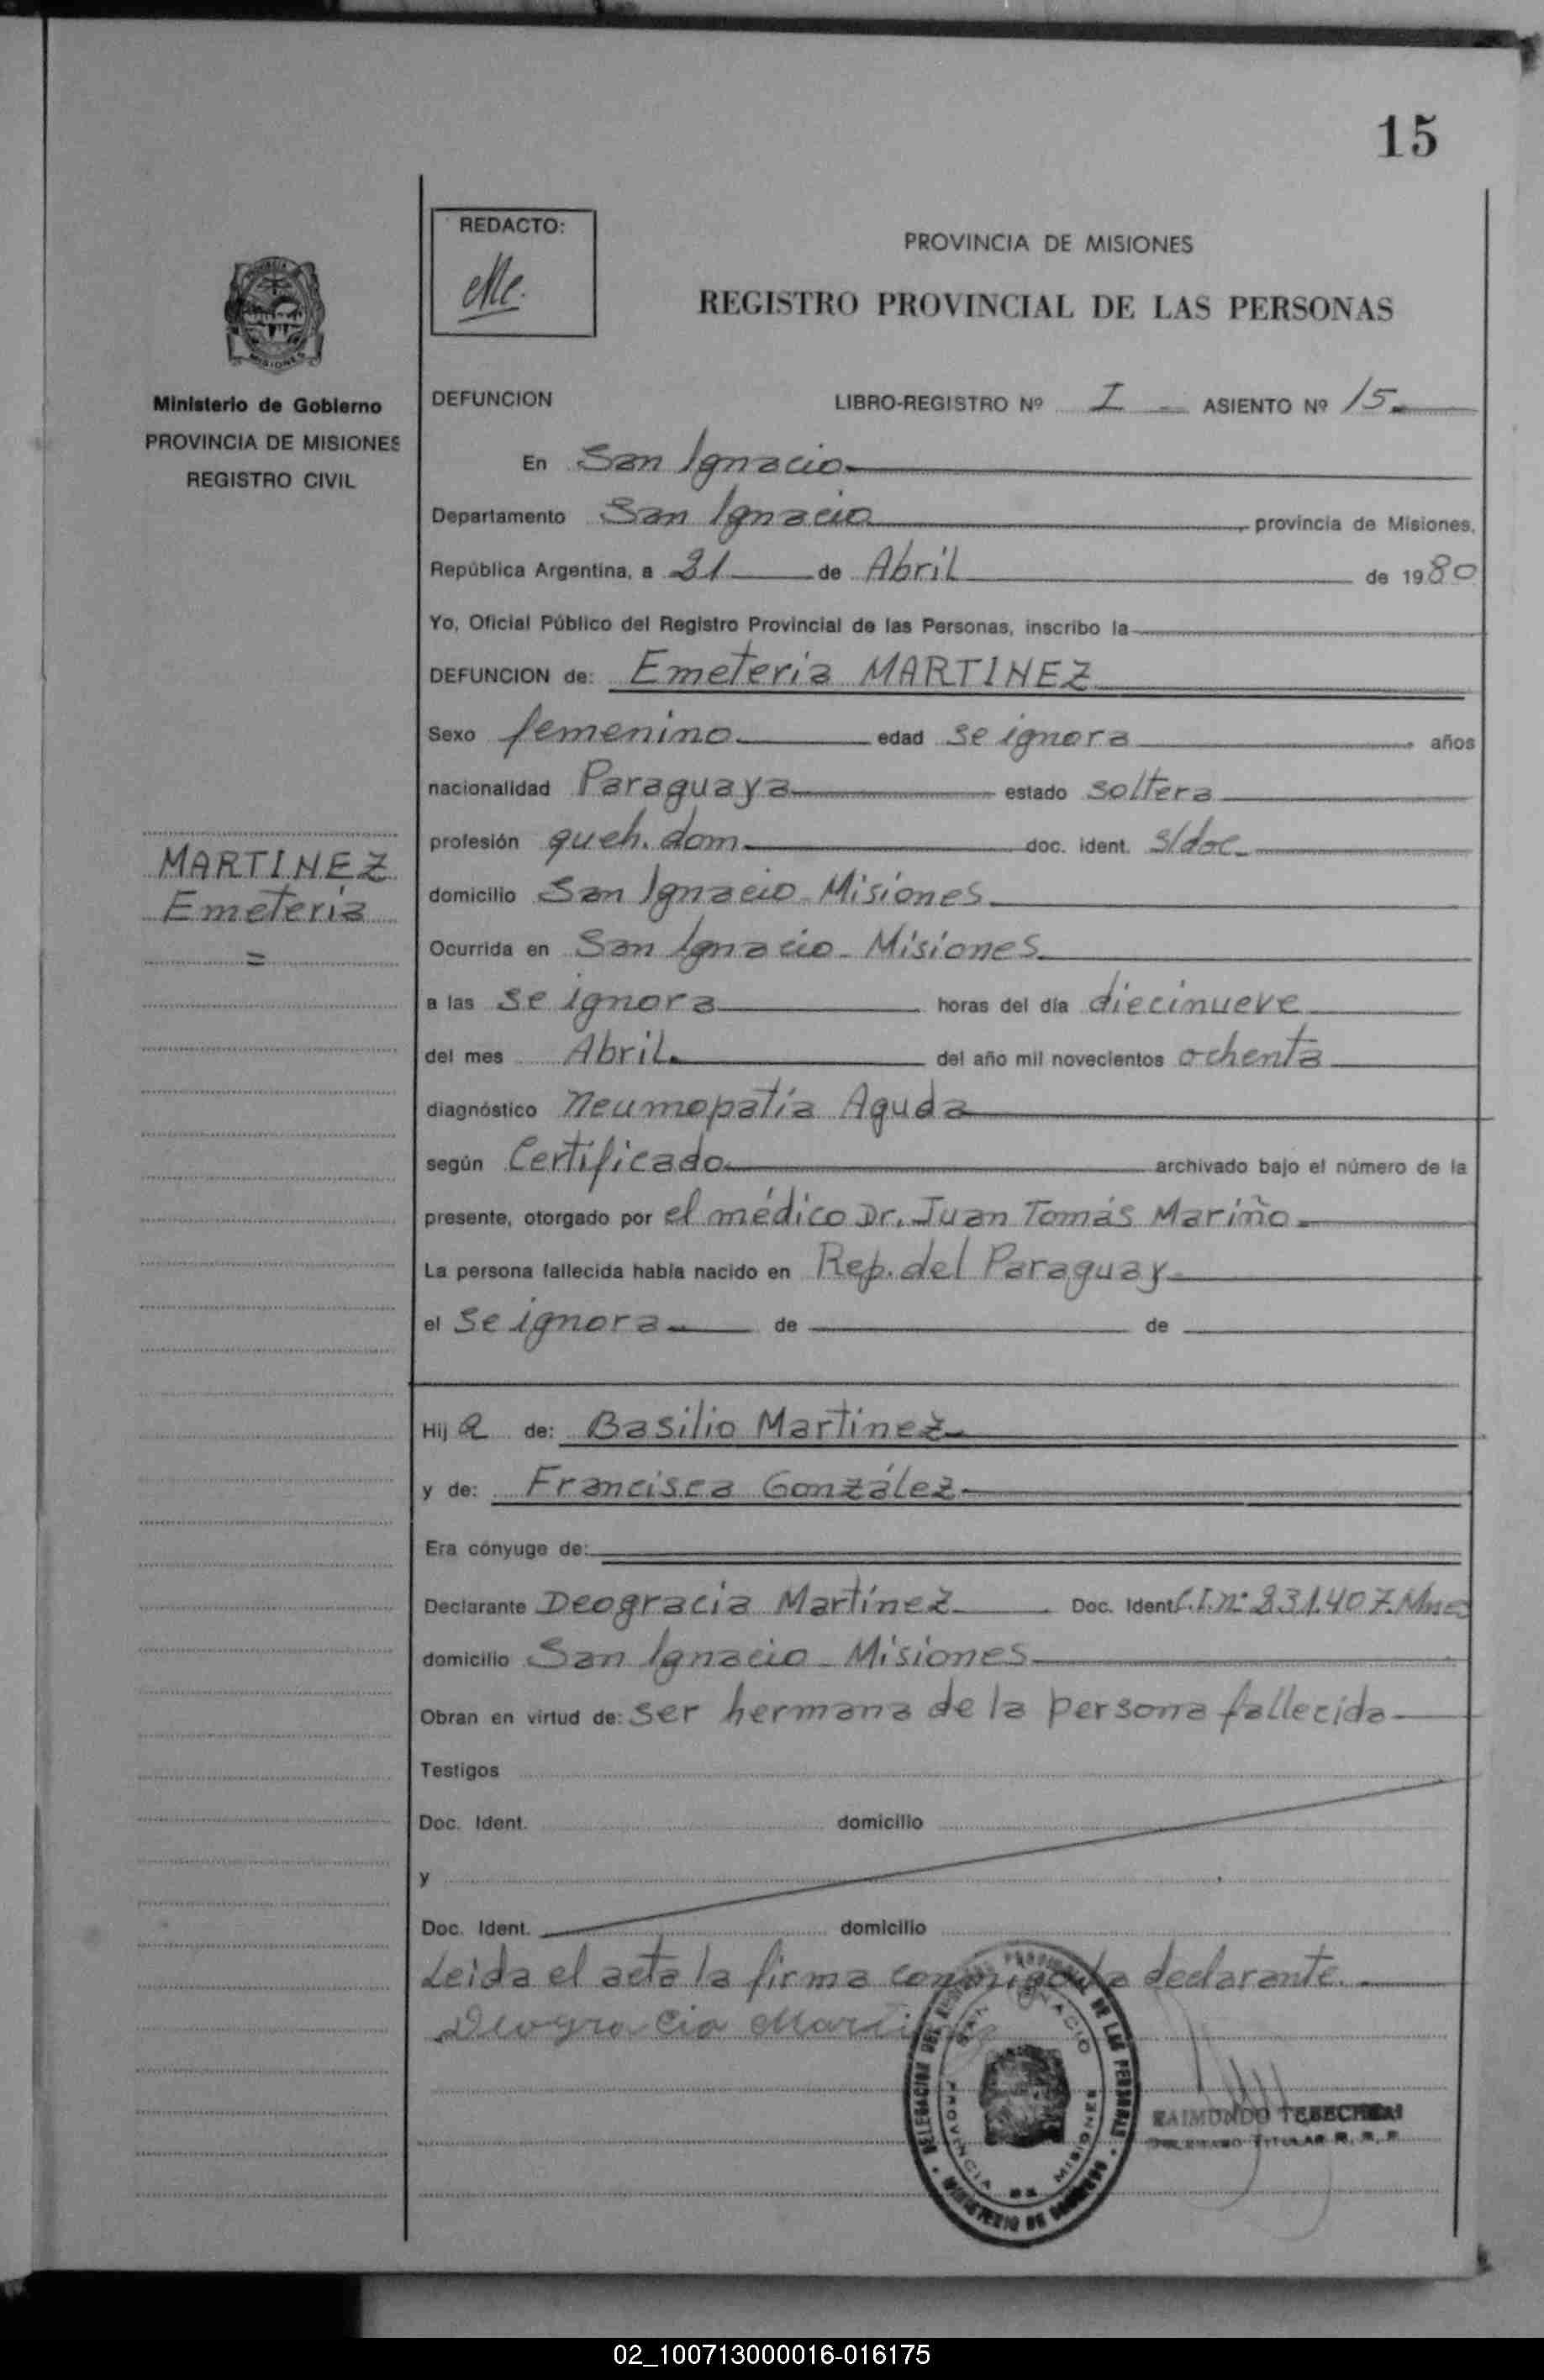 15
REDACTO:
PROVINCIA DE MISIONES
REGISTRO PROVINCIAL DE LAS PERSONAS
Ministerio de Gobierno
PROVINCIA DE MISIONES
REGISTRO CIVIL
DEFUNCION LIBRO-REGISTRO Nº I - ASIENTO Nº 15
En San Ignacio
Departamento San Ignacio, provincia de Misiones,
República Argentina, a 21 de Abril de 1980
Yo, Oficial Público del Registro Provincial de las Personas, inscribo la
DEFUNCION de: Emeteria MARTINEZ
Sexo femenino edad se ignora años
nacionalidad Paraguaya estado soltera
profesión queh. dom. doc. ident. s/doc
MARTINEZ
Emeteria
=
domicilio San Ignacio - Misiones
Ocurrida en San Ignacio - Misiones
a las se ignora horas del día diecinueve
del mes Abril del año mil novecientos ochenta
diagnóstico Neumopatía Aguda
según Certificado archivado bajo el número de la
presente, otorgado por el médico Dr. Juan Tomás Mariño
La persona fallecida había nacido en Rep. del Paraguay
el se ignora de de
Hij a de: Basilio Martinez
y de: Francisca González
Era cónyuge de:
Declarante Deogracia Martínez Doc. Ident. C.I. nº 231.407. Mnes
domicilio San Ignacio - Misiones
Obran en virtud de: ser hermana de la persona fallecida
Testigos
Doc. Ident. domicilio
y
Doc. Ident. domicilio
Leida el acta la firma conmigo la declarante.
Deogracia Martinez
DELEGACION DEL REGISTRO PROVINCIAL DE LAS PERSONAS
SAN IGNACIO
PROVINCIA DE MISIONES
MINISTERIO DE GOBIERNO
RAIMUNDO
TITULAR R. P. P.
02_100713000016-016175